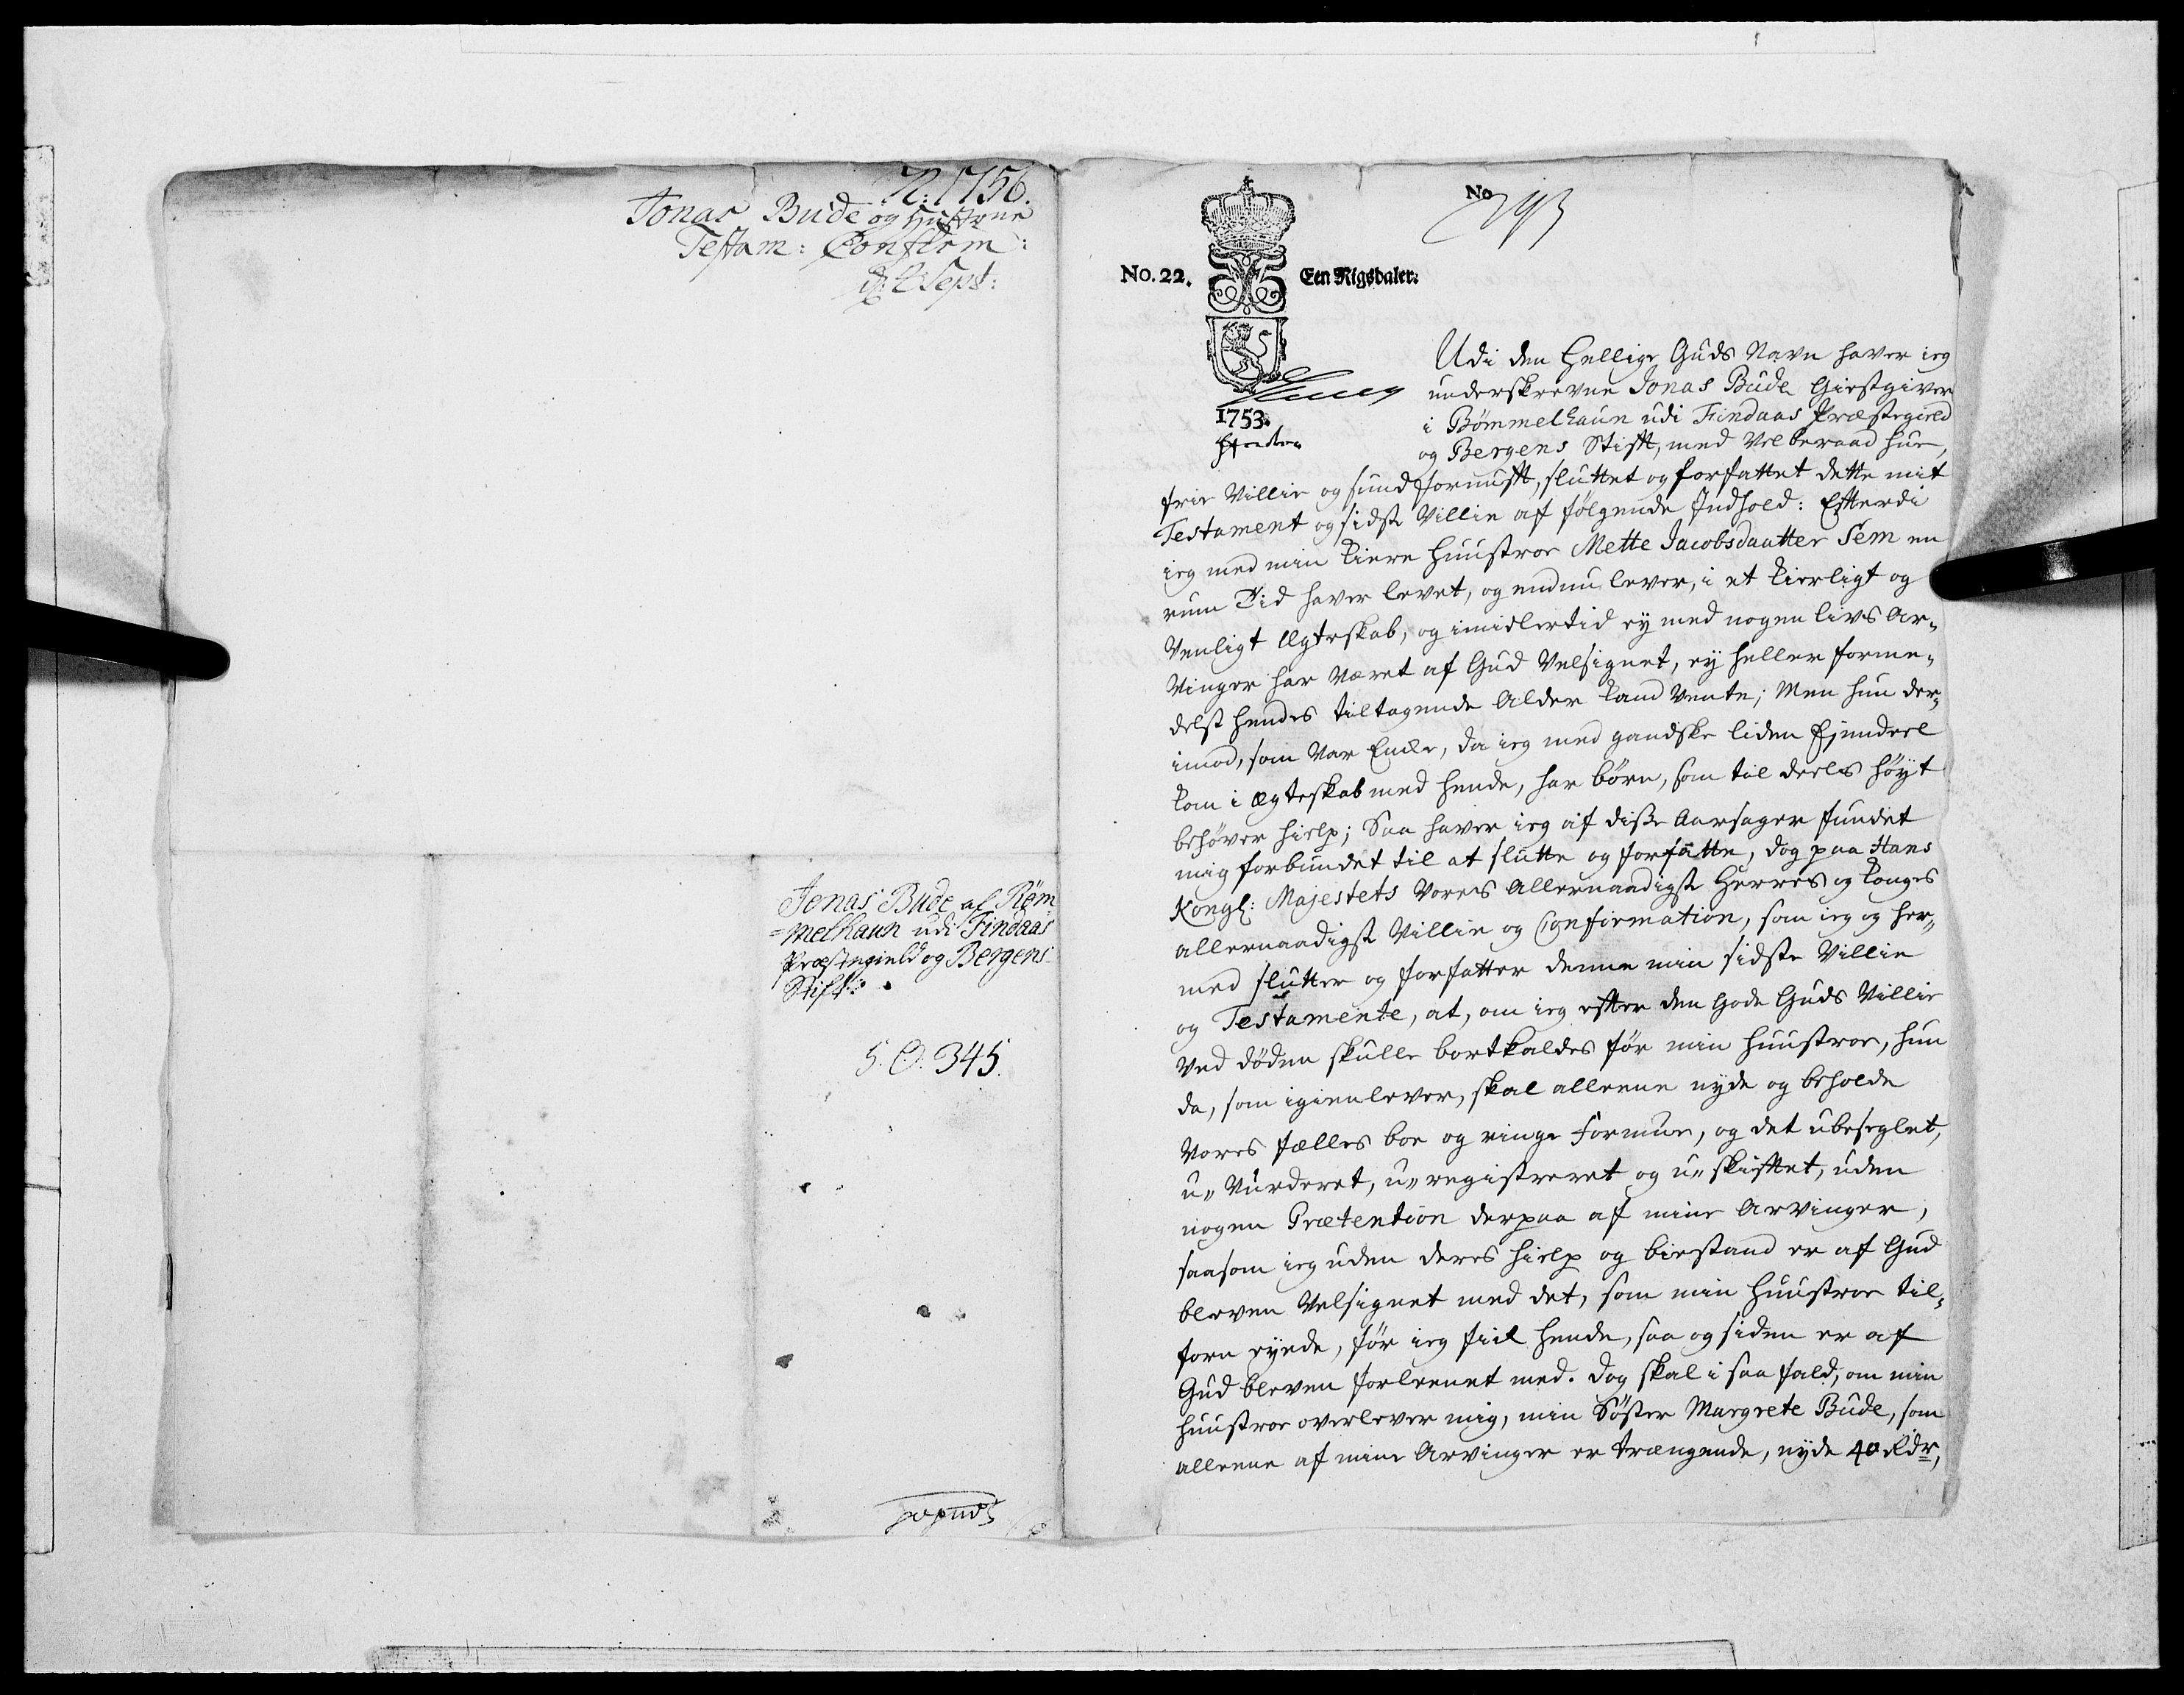 N: 1756.
Jonas Bude og Hustrue
Testam: Confirm:
d: 2 Sept:
Jonas Bude af Bøm
=melhaun udi Findaas
Præstegield og Bergens
Stift.
S. O. 345.
No
793
No. 22.
Een Rigsdaler.
1753.
Udi den Hellige Guds Navn haver ieg
underskrevne Jonas Bude Giestgiver
i Bømmelhaun udi Findaas Præstegield
og Bergens Stift, med Velberaad hue,
frie Villie og sund fornuft, sluttet og forfattet dette mit
Testament og sidste Villie af følgende Indhold: Efterdi
ieg med min kiere Huustroe Mette Jacobsdaatter Sem en
rum Tid haver levet, og endnu lever, i et kierligt og
Venligt Ægteskab, og imidlertid ey med nogen livs Ar„
Vinger har Været af Gud Velsignet, ey heller forme„
delst hendes tiltagende Alder kand Vente; Men hun der„
imod, som Var Encke, da ieg med gandske liden Ejendeel
kom i Ægteskab med hende, har børn, som til deels høyt
behøver hielp; Saa haver ieg af disse Aarsager fundet
mig forbundet til at slutte og forfatte, dog paa Hans
Kongl: Majestets Vores Allernaadigste Herres og Konges
allernaadigste Villie og Confirmation, som ieg og her„
med slutter og forfatter denne min sidste Villie
og Testamente, at, om ieg efter den gode Guds Villie
Ved døden skulle bortkaldes før min Huustroe, hun
da, som igienlever, skal alleene nyde og beholde
Vores fælles boe og ringe Formue, og det ubeseglet,
u„Vurderet, u„registreret og u„skiftet, uden
nogen Prætention derpaa af mine Arvinger,
saasom ieg uden deres hielp og biestand er af Gud
bleven Velsignet med det, som min Huustroe til„
forn eyede, før ieg fik hende, saa og siden er af
Gud bleven forleenet med. Dog skal i saa fald, om min
Huustroe overlever mig, min Søster Margrete Bude, som
alleene af mine Arvinger er trængende, nyde 40 Rdr,